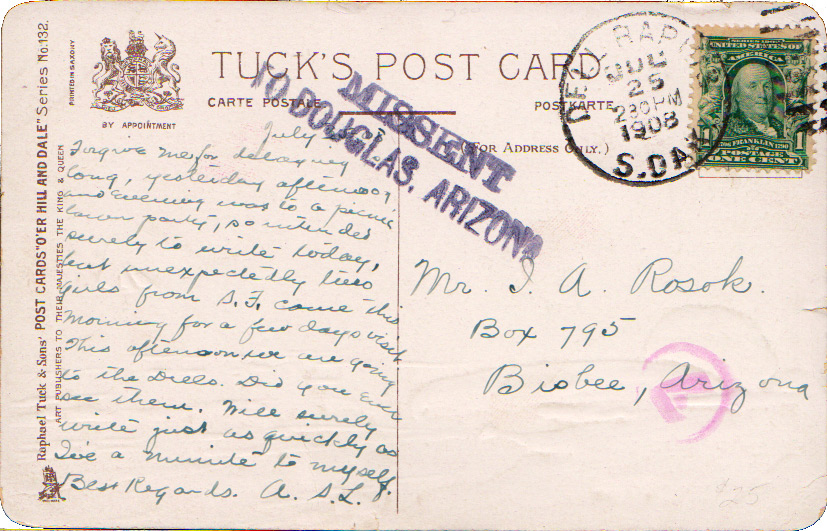 TUCK'S POST CARD
CARTE POSTALE
POSTKARTE
(FOR ADDRESS ONLY.)
BY APPOINTMENT
PRINTED IN SAXONY
Raphael Tuck & Sons' POST CARDS "O'ER HILL AND DALE" Series No. 132.
ART PUBLISHERS TO THEIR MAJESTIES THE KING & QUEEN
MISSENT
TO DOUGLAS, ARIZONA
DELL RAPI
JUL
25
230PM
1908
S.DAK
UNITED STATES OF
AMERICA
FRANKLIN
POSTAGE
ONE CENT
July
Forgive me for delaying
long, yesterday afternoon
and evening was to a picnic
lawn party, so intended
surely to write today,
but unexpectedly two
girls from S.F. came this
morning for a few days visit.
This afternoon we are going
to the Dells. Did you ever
see them. Will surely
write just as quickly as
I've a minute to myself.
Best Regards. A. S. L.
Mr. I. A. Rosok.
Box 795
Bisbee, Arizona